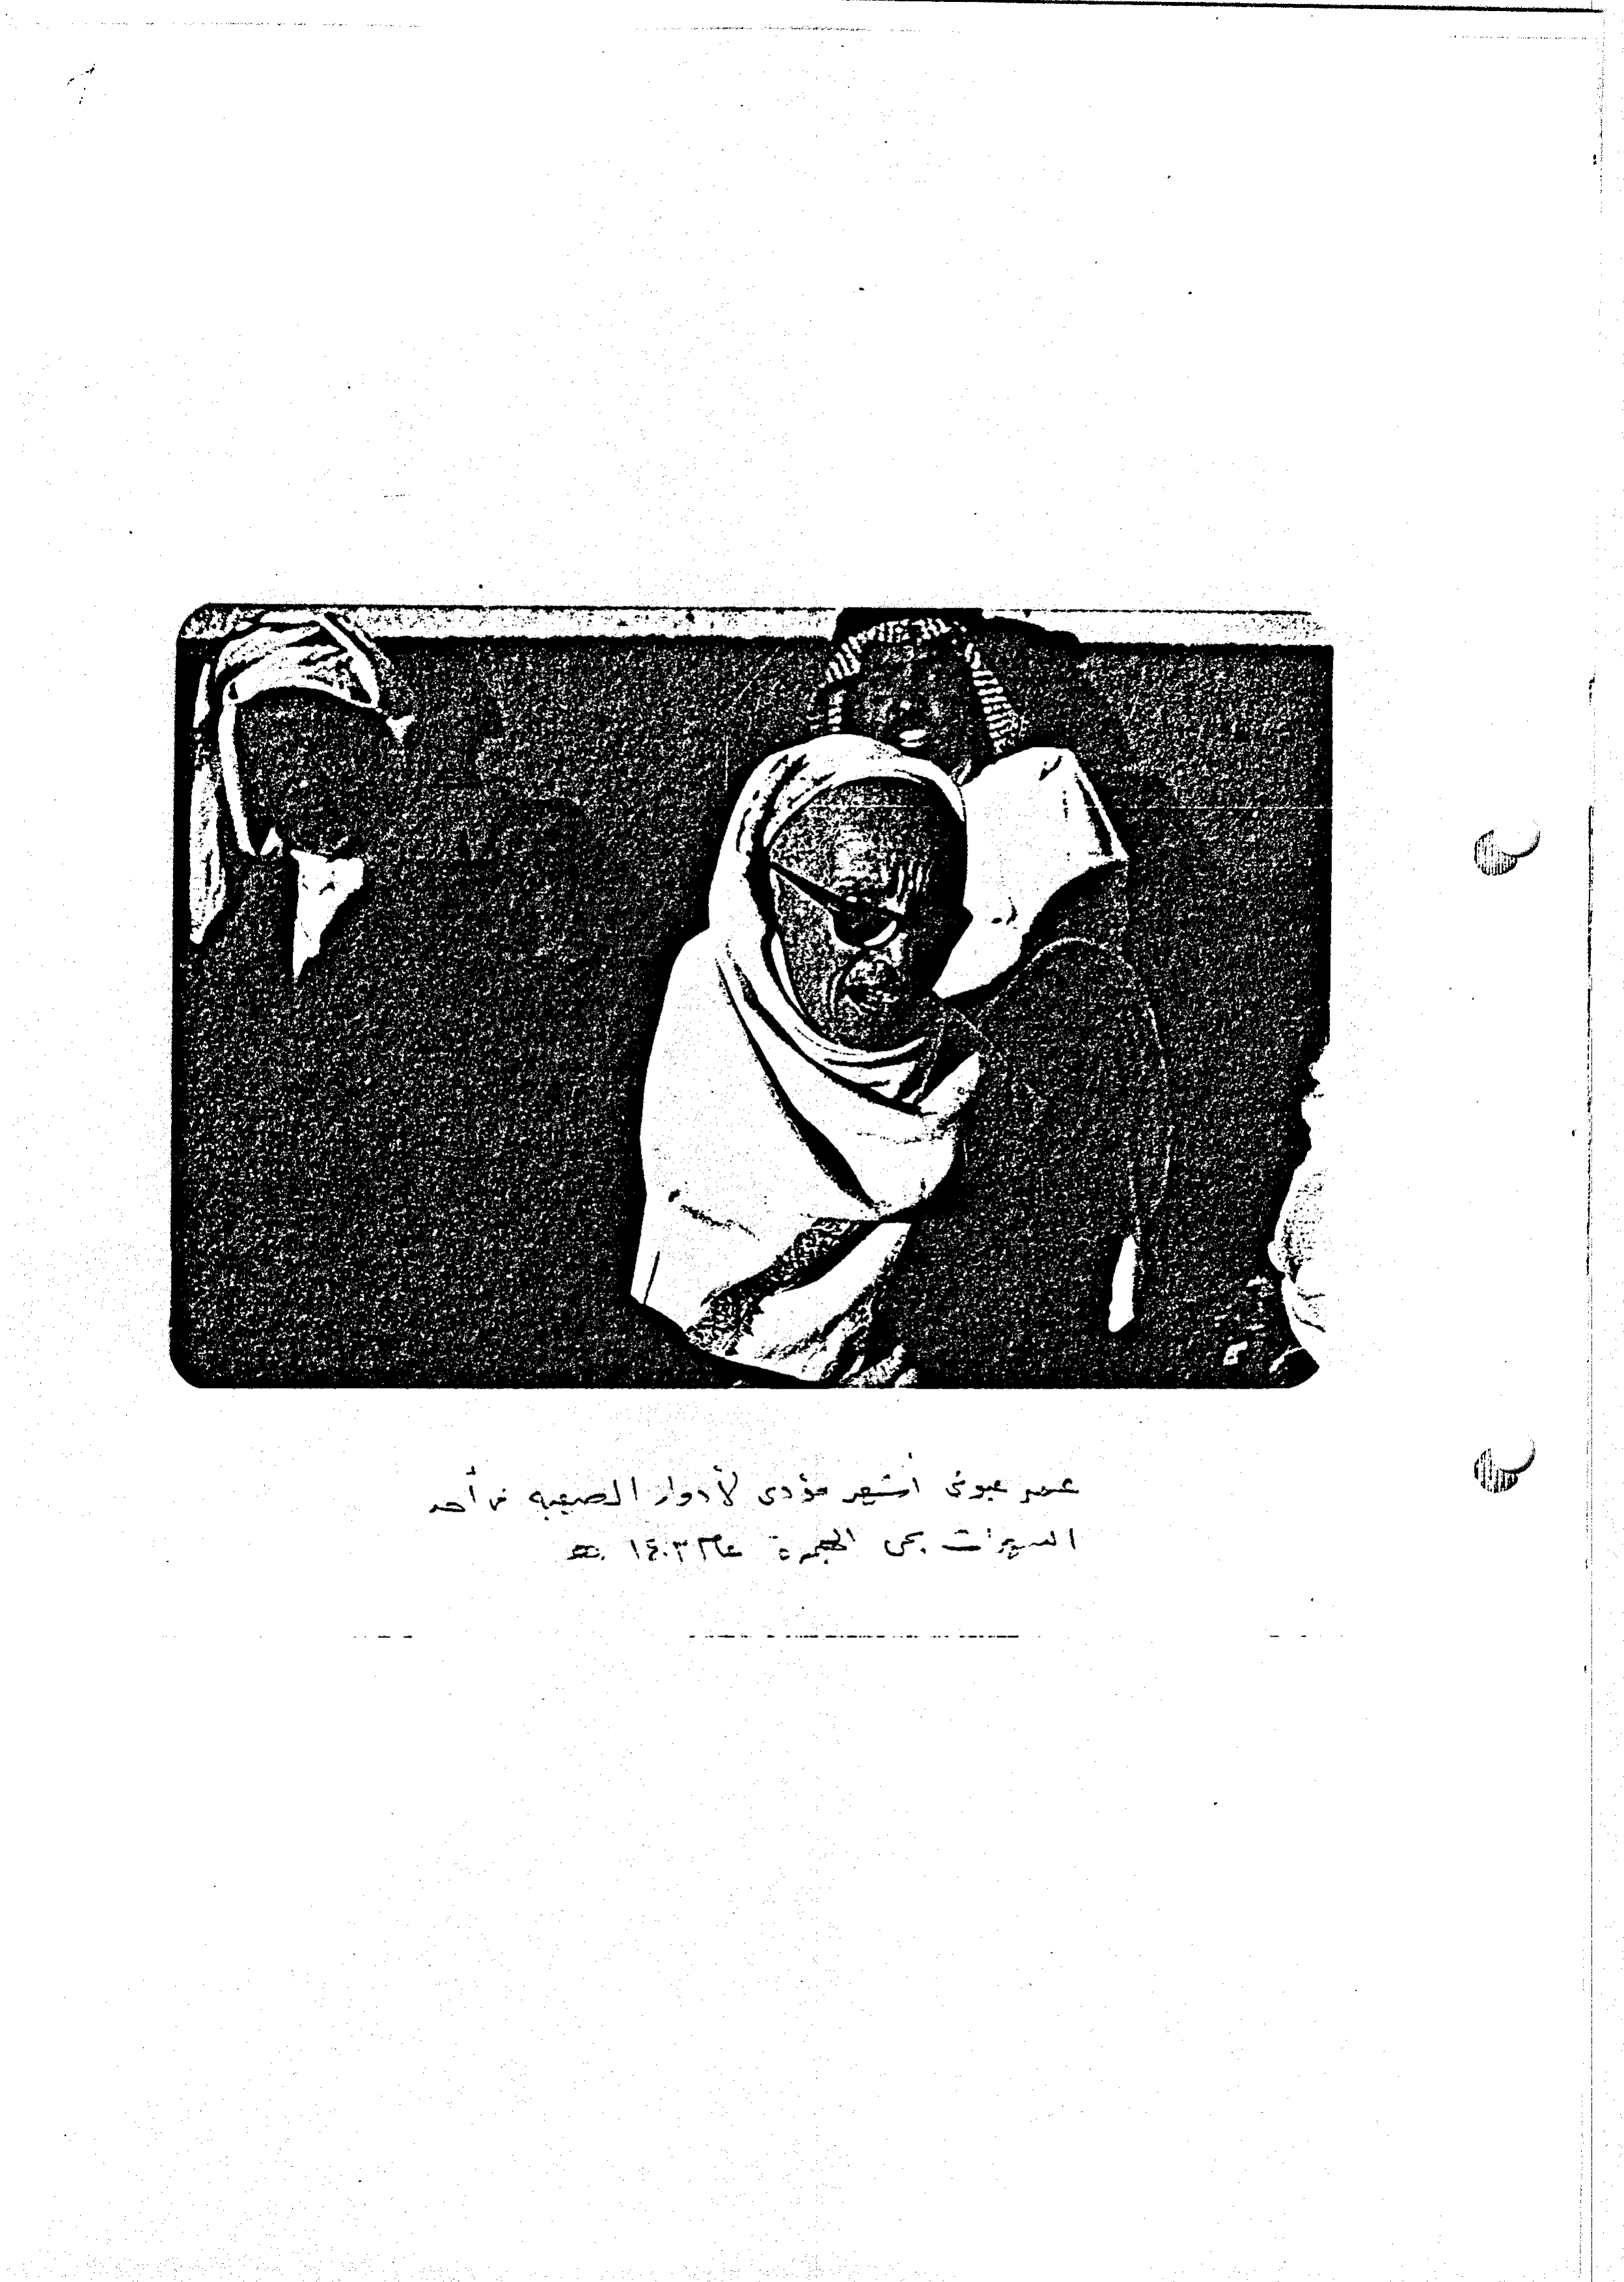 عمر عيوني أشهر مؤدي لأدوار الصعبة في أحد
السهرات بحي الهجرة عام ١٤٠٣ هـ